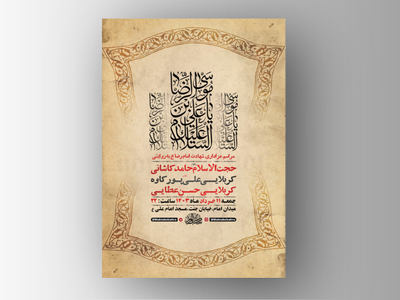 السلام علیک یا علی بن موسی الرضا
مراسم عزاداری شهادت امام رضا ع
حجت الاسلام حامد کاشانی
کربلایی علی پورکاوه
کربلایی حسن عطایی
جمعه ۱۱ خرداد ماه ۱۴۰۳ ساعت: ۲۲
میدان امام، خیابان جنت، مسجد امام علی ع